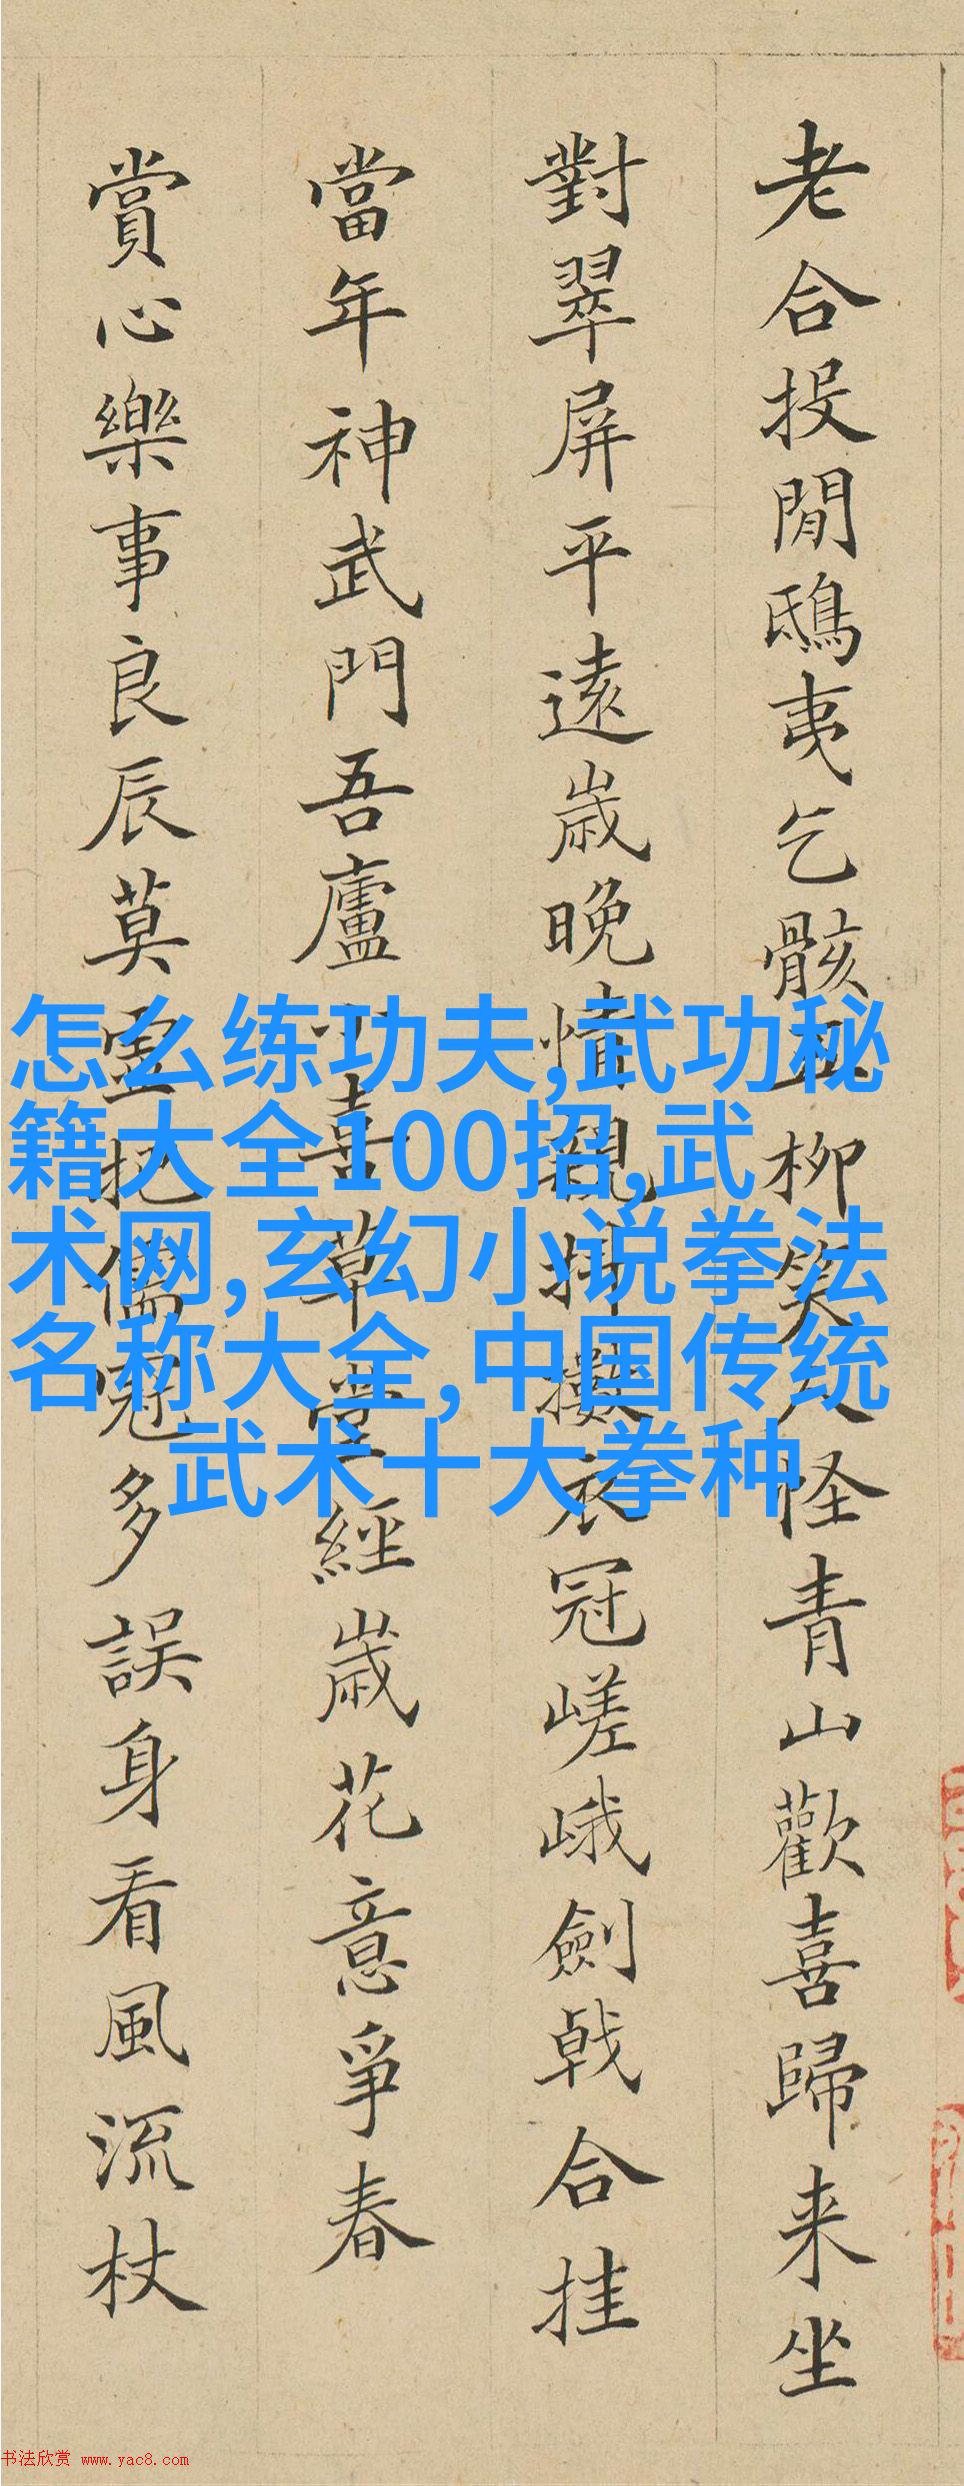 老合投閒鴟夷乞骸柳笑人怪青山歡喜歸来坐
對翠屏平遠歲晚情親掃衣冠嵯峨劍戟合挂
當年神武門吾廬喜草堂經歲花意爭春
賞心樂事良辰莫把儒冠多誤身看風流杖
怎么练功夫,武功秘
籍大全100招,武
术网,玄幻小说拳法
名称大全,中国传统
武术十大拳种
书法欣赏 www.yac8.com